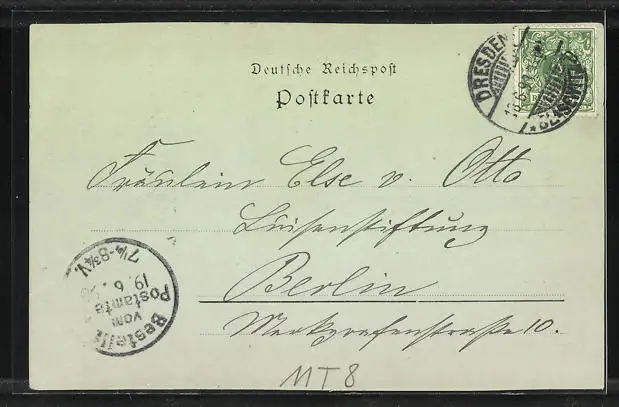 Deutsche Reichspost
Postkarte
DRESDEN
18.6.9
Fräulein Else v. Otto
Luisenstiftung
Berlin
Markgrafenstraße 10.
Bestellt
vom
Postamte
19. 6. 98
7¼-8¾V.
MT8